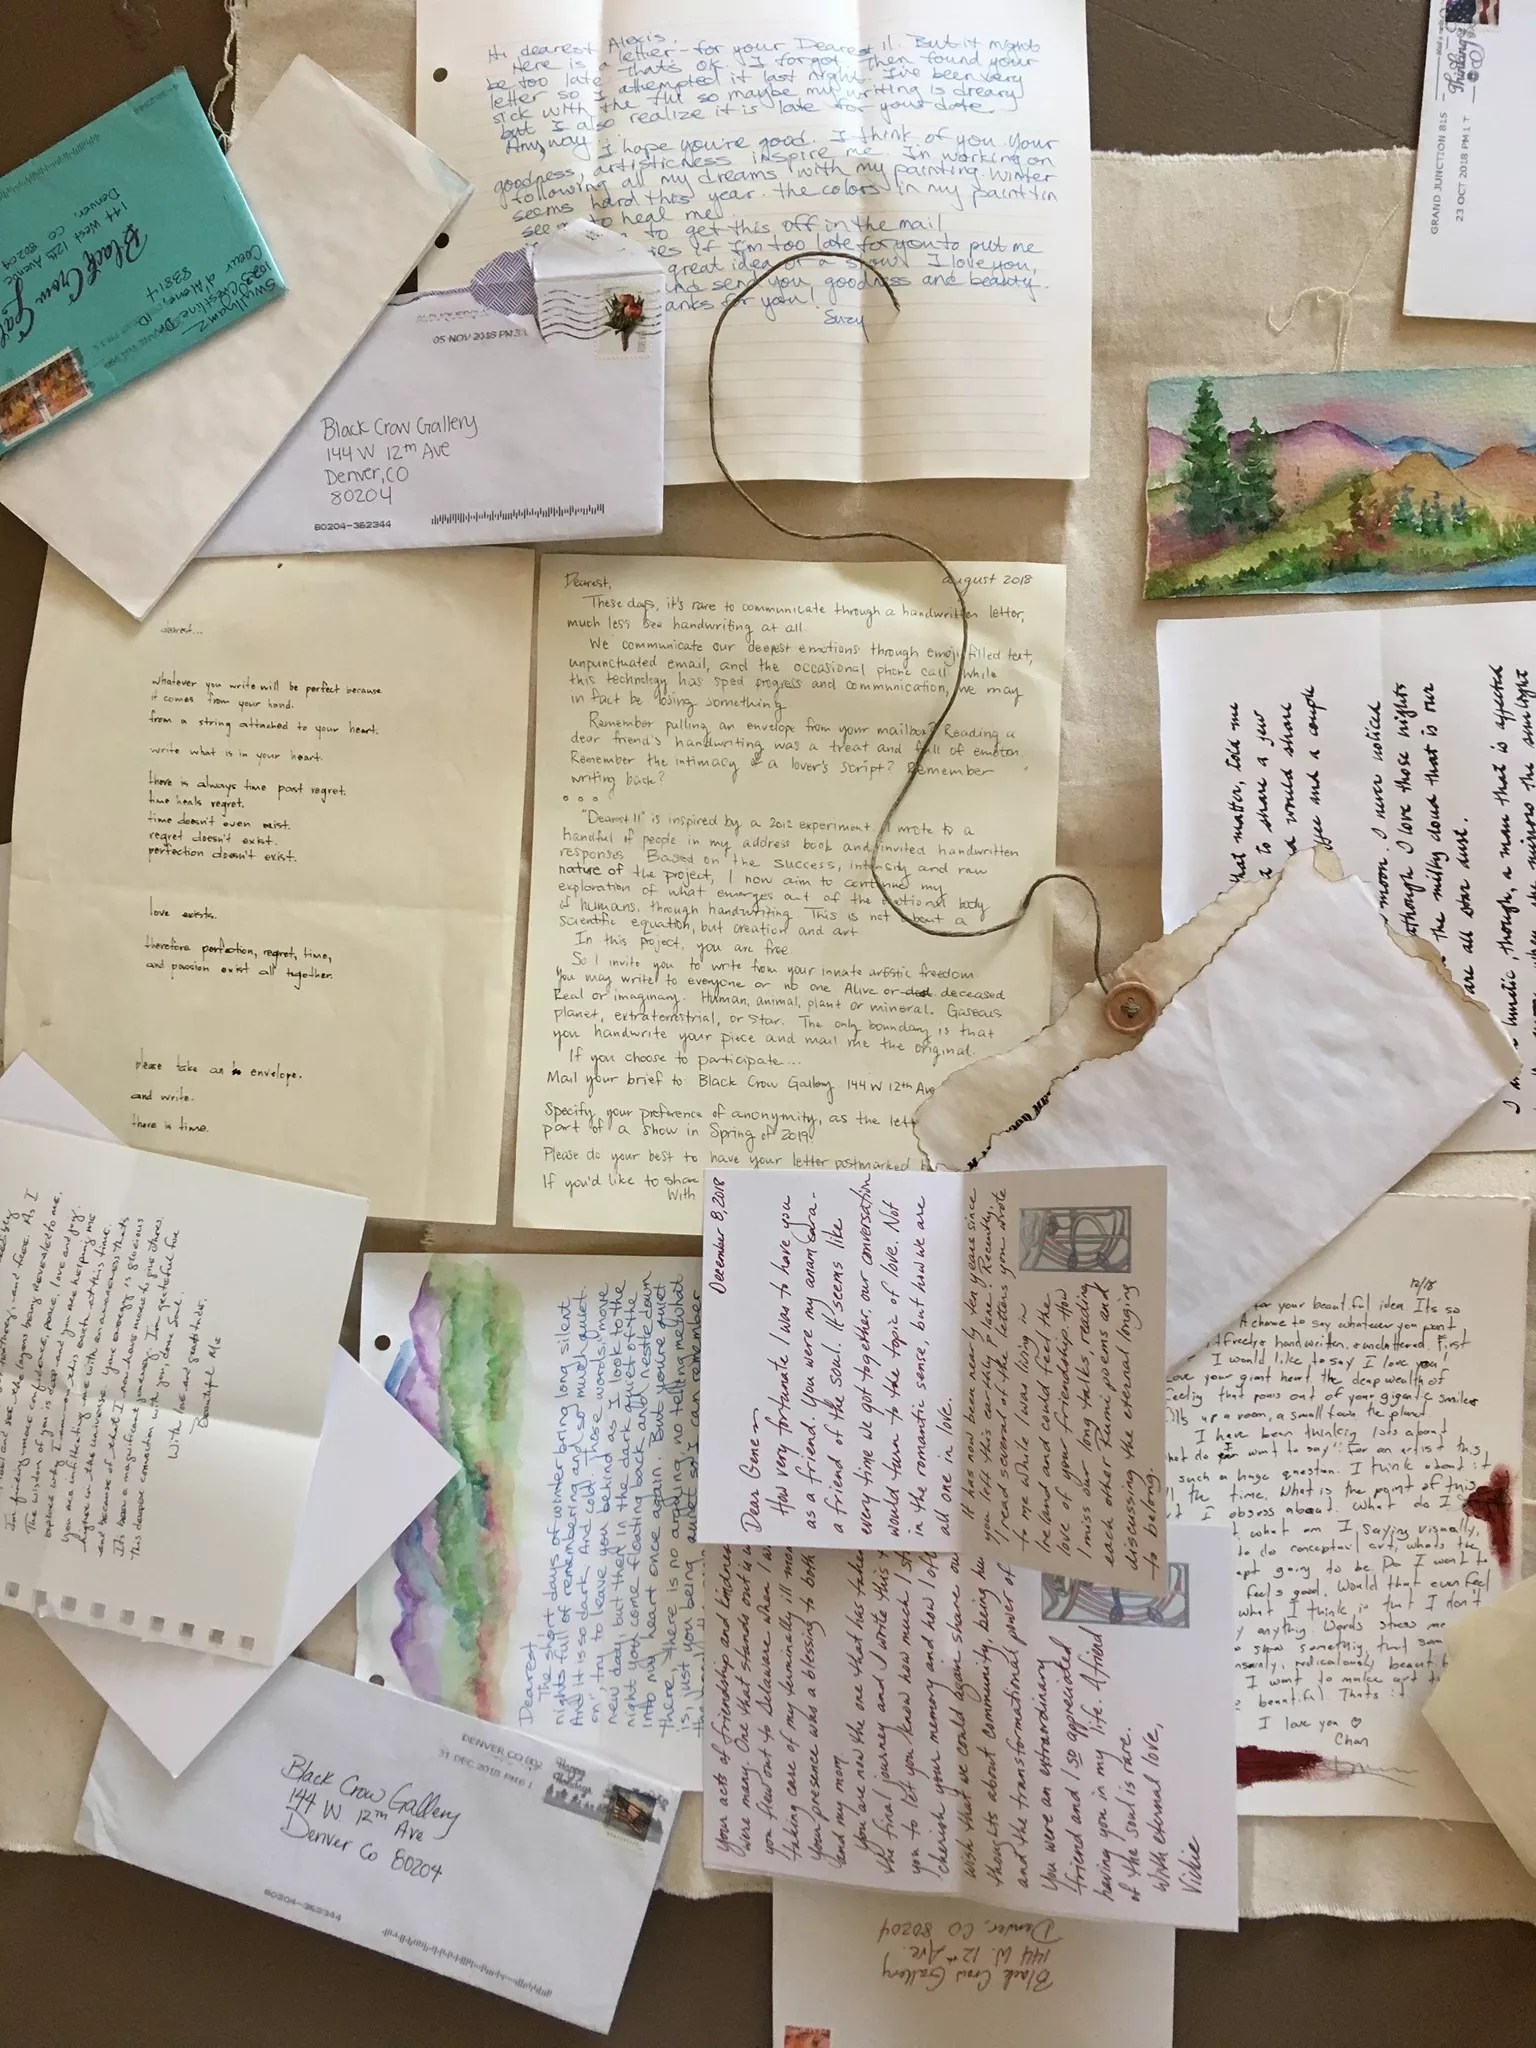 Hi dearest Alexis.
Here is a letter - for your Dearest 11. But it might
be too late. That's ok. I forgot. Then found your
letter so I attempted it last night. I've been very
sick with the flu so maybe my writing is dreary
but I also realize it is love for your date.
Anyway I hope you're good. I think of you. Your
goodness, artisticness inspire me. In working on
following all my dreams with my painting. Winter
seems hard this year. the colors in my paintin
to heal me
to get this off in the mail,
if I'm too late for you to put me
great idea of a show. I love you,
and send you goodness and beauty.
anks for you!
Suzy
GRAND JUNCTION 815
23 OCT 2018 PM 1 T
Black Crow Gal
144 West 12th Avenue
Denver, CO 80204
Coeur d'Alene, ID
83814
05 NOV 2018 PM
Black Crow Gallery
144 W 12th Ave
Denver, CO
80204
80204-362344
dearest...
whatever you write will be perfect because
it comes from your hand.
from a string attached to your heart.
write what is in your heart.
there is always time past regret.
time heals regret.
time doesn't even exist.
regret doesn't exist.
perfection doesn't exist.
love exists.
therefore perfection, regret, time,
and passion exist all together.
please take an envelope.
and write.
there is time.
Dearest,
august 2018
These days, it's rare to communicate through a handwritten letter,
much less see handwriting at all.
We communicate our deepest emotions through emoji filled text,
unpunctuated email, and the occasional phone call. While
this technology has sped progress and communication, we may
in fact be losing something.
Remember pulling an envelope from your mailbox? Reading a
dear friend's handwriting was a treat and full of emotion.
Remember the intimacy of a lover's script? Remember
writing back?
"Dearest 11" is inspired by a 2012 experiment. I wrote to a
handful of people in my address book and invited handwritten
responses. Based on the success, intensity and raw
nature of the project, I now aim to continue my
exploration of what emerges out of the emotional body
of humans, through handwriting. This is not about a
scientific equation, but creation and art
In this project, you are free.
So I invite you to write from your innate artistic freedom.
You may write to everyone or no one. Alive or deceased
Real or imaginary. Human, animal, plant or mineral. Gaseous
planet, extraterrestrial, or star. The only boundary is that
you handwrite your piece and mail me the original.
If you choose to participate...
Mail your brief to: Black Crow Gallery 144 W 12th Ave
Specify your preference of anonymity, as the lett
part of a show in Spring of 2019
Please do your best to have your letter postmarked b
If you'd like to share
With
that matter, told me
to share a few
would share
and a couple
moon. I never noticed
although I love those nights
the milky cloud that is our
are all star dust.
, though, a man that is affected
the mirrors the sunlight
I'm finding more confidence, peace, love and joy.
The wisdom of you is deep and you are helping me
explore why I am on this earth at this time.
you are infiltrating me with an awareness that's
higher in the universe. Your energy is glorious
and because of that I now have more to give others.
It's been a magnificent journey. I'm grateful for
this deeper connection with you, dear soul.
With love and gratitude,
Beautiful Me
Dearest
The short days of winter bring long silent
nights full of remembering and so much quiet.
And it is so dark. And cold. Those words, "move
on", try to leave you behind as I look to the
new day, but then in the dark quiet of the
night you come floating back and nestle down
into my heart once again. But you're quiet
there, there is no arguing, no telling me what
is, just you being quiet so I can remember
December 8, 2018
Dear Gene ~
How very fortunate I was to have you
as a friend. You were my anam cara -
a friend of the soul. It seems like
every time we got together, our conversation
would turn to the topic of love. Not
in the romantic sense, but how we are
all one in love.
It has now been nearly ten years since
you left this earthly plane. Recently,
I read several of the letters you wrote
to me while I was living in
Ireland and could feel the
love of your friendship. How
I miss our long talks, reading
each other Rumi poems and
discussing the eternal longing
to belong.
Your acts of friendship and kindness
were many. One that stands out is w
you flew out to Delaware when I w
taking care of my terminally ill mo
Your presence was a blessing to both
and my mom.
You are now the one that has taken
the final journey and I write this
you to let you know how much I st
cherish your memory and how I oft
wish that we could again share ou
thoughts about community, being hu
and the transformational power of
You were an extraordinary
friend and I so appreciated
having you in my life. A friend
of the soul is rare.
With eternal love,
Vickie
12/18
for your beautiful idea. Its so
A chance to say whatever you want,
freely & handwritten, unfettered. First
I would like to say I love you!
your giant heart. the deep wealth of
that pours out of your gigantic smiles
up a room, a small town, the planet.
I have been thinking lots about
do I want to say" For an artist this
such a huge question. I think about it
the time. What is the point of this
I obsess about. What do I
what am I saying visually,
to do conceptual art, whats the
going to be. Do I want to
feels good. Would that even feel
what I think is that I don't
anything. Words stress me
show something that
insanely, rediculously beautiful
I want to make art
beautiful. Thats it
I love you ♡
Chan
DENVER CO 802
31 DEC 2018 PM 6 1
Black Crow Gallery
144 W 12th Ave
Denver Co 80204
80204-362344
Black Crow Gallery
144 W. 12th Ave.
Denver, CO 80204